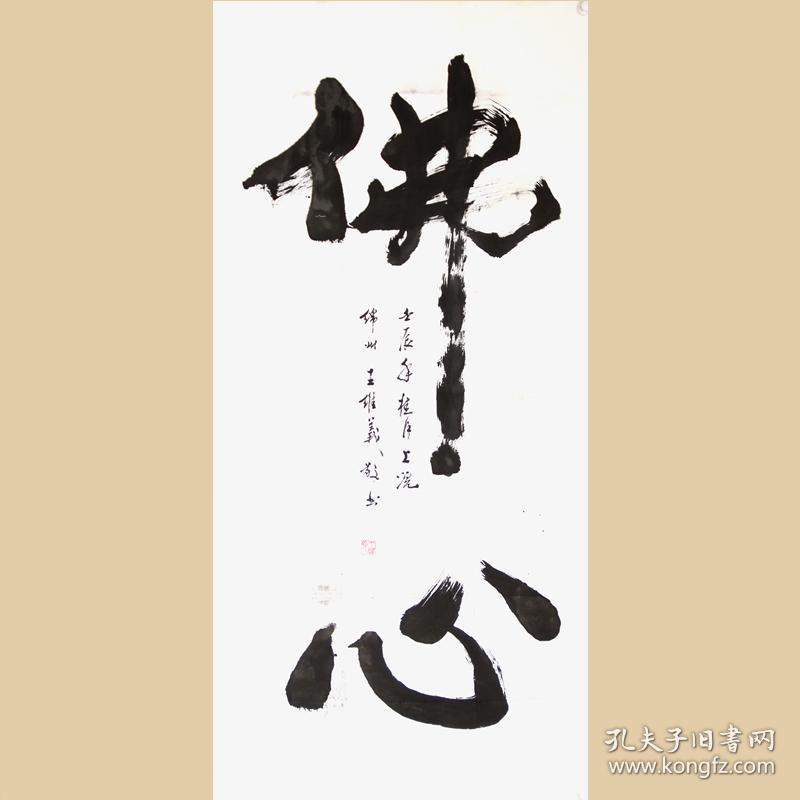 佛心
壬辰年桂月上浣
绵州王雄义敬书
孔夫子旧书网
www.kongfz.com